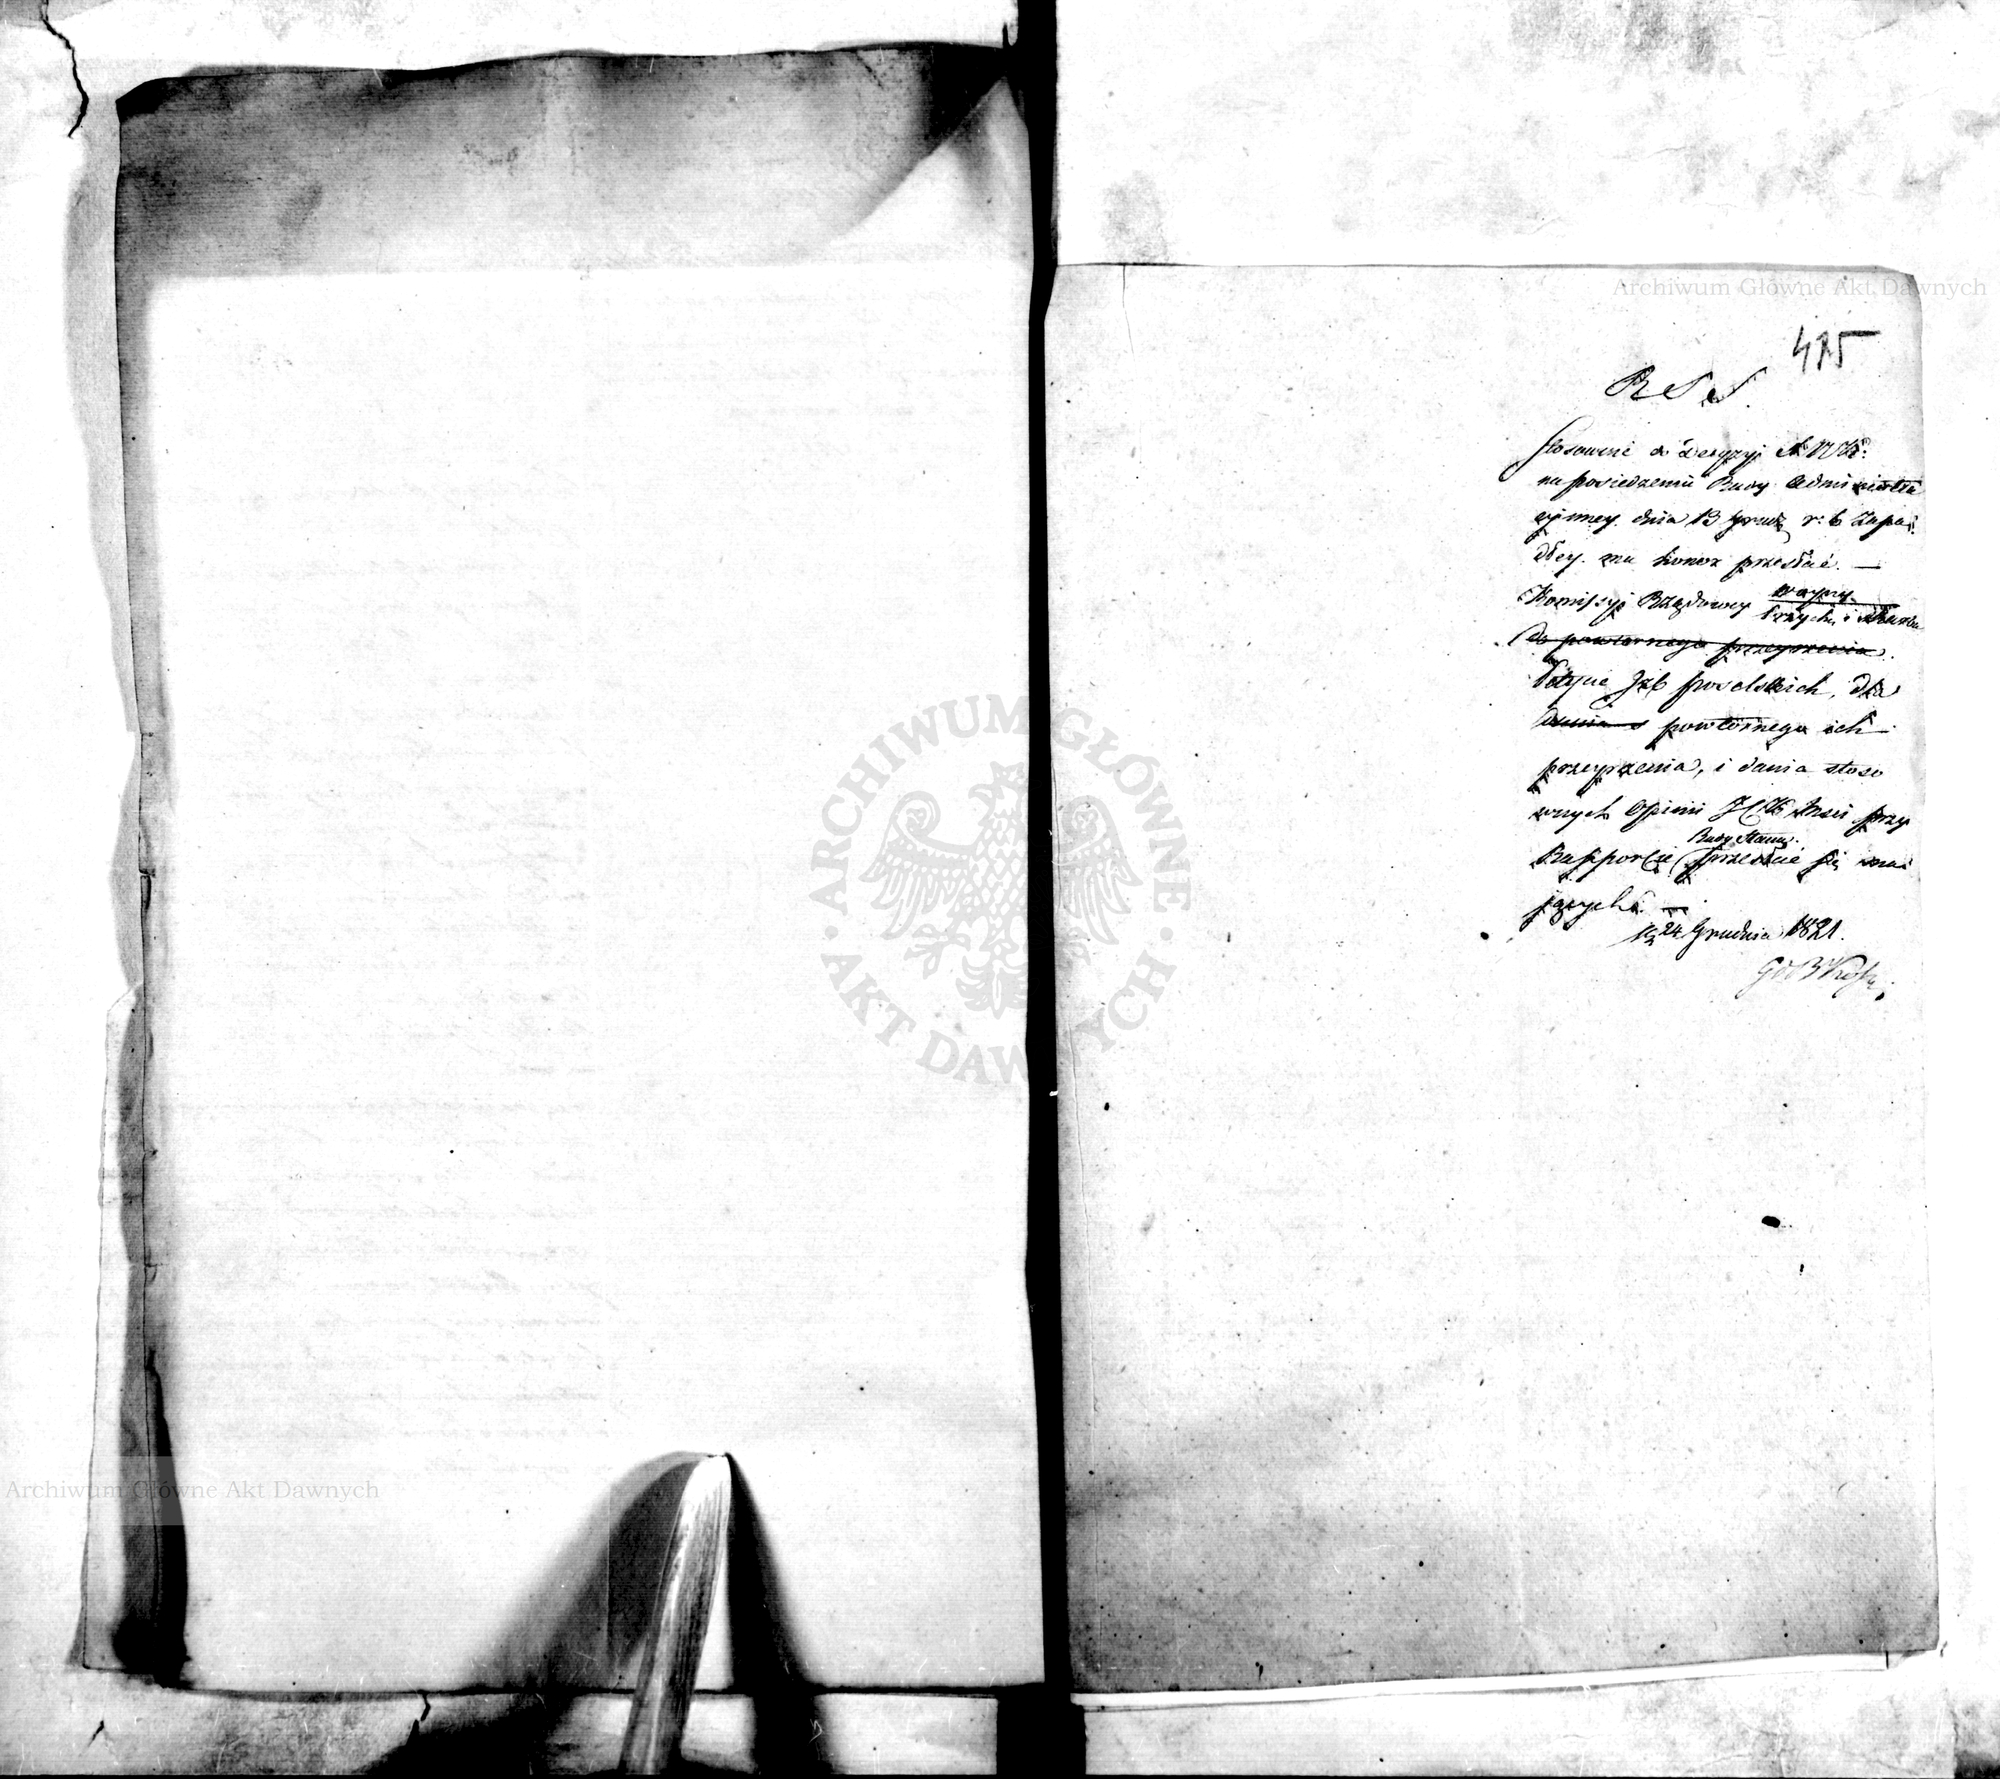 Archiwum Główne Akt Dawnych
415
R S S.
Stosownie do Decyzyi
na posiedzeniu Rady Administra
cyjney dnia 13 Grud: r: b zapa
dłey ma honor przesłać. —
Kommissyi Rządowey
do powtornego przeyrzenia.
Izb poselskich, dla
dania powtórnego ich
przeyrzenia, i dania stoso
wnych Opinii przy
Rady Stanu.
Rapporcie przesłać się ma
jących. —
24 Grudnia 1821.
ARCHIWUM GŁÓWNE
AKT DAWNYCH
Archiwum Główne Akt Dawnych